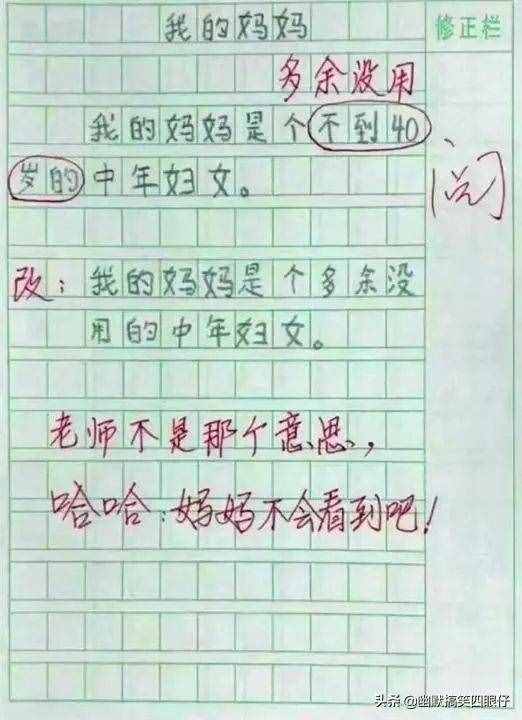 我的妈妈
修正栏
多余没用
我的妈妈是个不到40
岁的中年妇女。
阅
改：我的妈妈是个多余没
用的中年妇女。
老师不是那个意思，
哈哈：妈妈不会看到吧！
头条 @幽默搞笑四眼仔